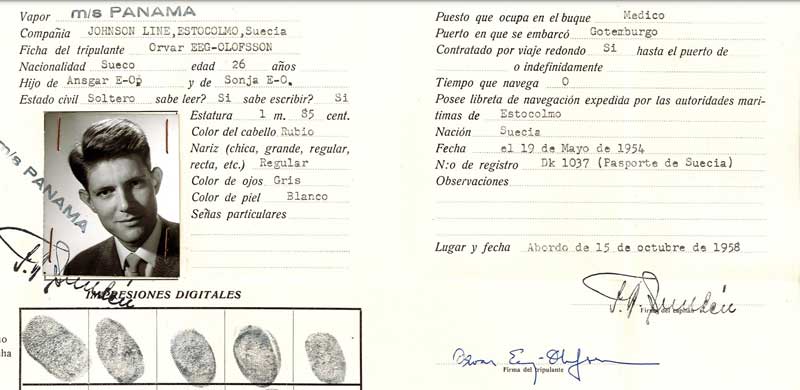 Vapor m/s PANAMA
Compañia JOHNSON LINE,ESTOCOLMO,Suecia
Ficha del tripulante Orvar EEG-OLOFSSON
Nacionalidad Sueco edad 26 años
Hijo de Ansgar E-O, y de Sonja E-O.
Estado civil Soltero sabe leer? Si sabe escribir? Si
Estatura 1 m. 85 cent.
Color del cabello Rubio
Nariz (chica, grande, regular,
recta, etc.) Regular
Color de ojos Gris
Color de piel Blanco
Señas particulares
m/s PANAMA
IMPRESIONES DIGITALES
Puesto que ocupa en el buque Medico
Puerto en que se embarcó Gotemburgo
Contratado por viaje redondo Si hasta el puerto de
o indefinidamente
Tiempo que navega 0
Posee libreta de navegación expedida por las autoridades mari-
timas de Estocolmo
Nación Suecia
Fecha el 19 de Mayo de 1954
N:o de registro Dk 1037 (Pasporte de Suecia)
Observaciones
Lugar y fecha Abordo de 15 de octubre de 1958
Firma del capitán
Orvar Eeg-Olofsson
Firma del tripulante